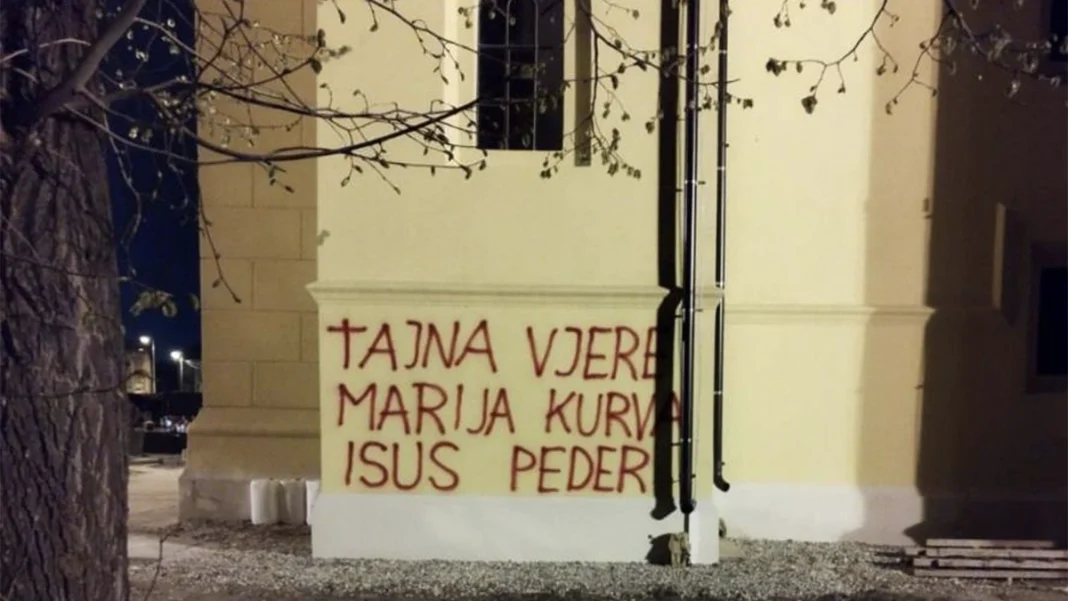 TAJNA VJERE
MARIJA KURVA
ISUS PEDER